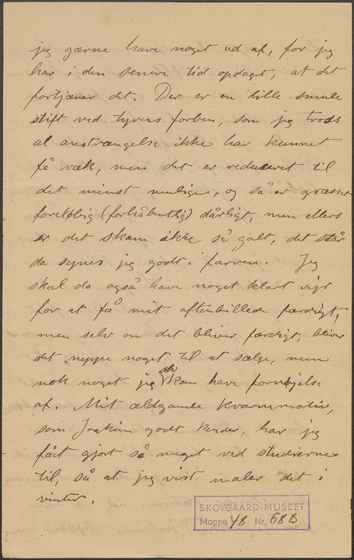 jeg gærne have noget ud af, for jeg
har i den senere tid opdaget, at det
fortjæner det. Der er en lille smule
stift ved tyrens forben, som jeg trods
al anstrængelse ikke har kunnet
få væk, men det er reduceret til
det minst mulige, og så er græsset
foreløbig (forhåbentlig) dårligt, men ellers
er det skam ikke så galt, det står
da synes jeg godt i farven. Jeg
skal da også have noget klart vejr
for at få mit aftenbillede færdigt,
men selv om det bliver færdigt, bliver
det neppe noget til at sælge, men
nok noget jeg kan have fornøjelse
af. Mit ældgamle kværnemotiv,
som Joakim godt kender, har jeg
fået gjort så meget ved studierne
til, så at jeg vist maler det i
vinter.
SKOVGAARD-MUSEET
Mappe 48 Nr. 68 B